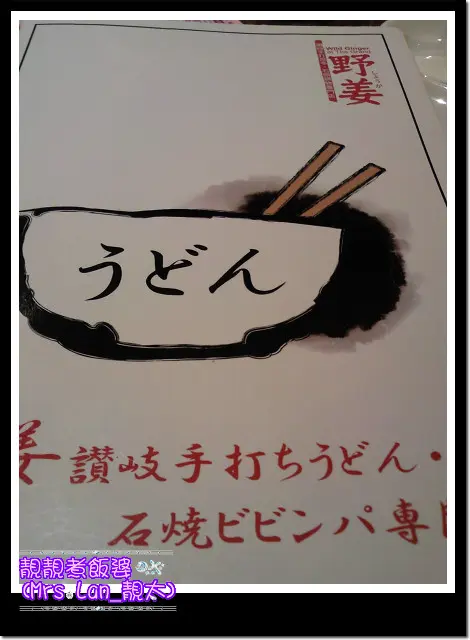 Wild Ginger
野姜
しょうが
うどん
姜 讃岐手打ちうどん・
石焼ビビンパ専
靚靚煮飯婆
(Mrs. Lan_靚太)